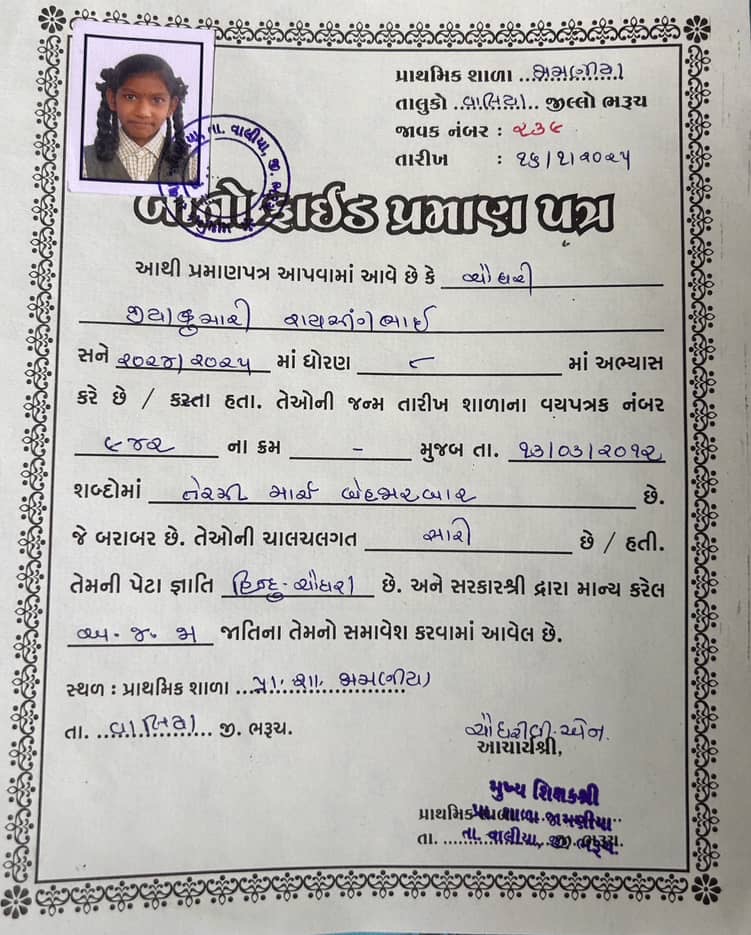 પ્રાથમિક શાળા જામણીયા
તાલુકો વાલિયા જીલ્લો ભરૂચ
જાવક નંબર : ૨૩૯
તારીખ : ૧૬/૧/૨૦૨૫
તા. વાલીયા, જી. ભરૂચ
બોનોફાઈડ પ્રમાણ પત્ર
આથી પ્રમાણપત્ર આપવામાં આવે છે કે ચૌધરી
જીયાકુમારી રાયસીંગભાઈ
સને ૨૦૨૪/૨૦૨૫ માં ધોરણ ૮ માં અભ્યાસ
કરે છે / કરતા હતા. તેઓની જન્મ તારીખ શાળાના વયપત્રક નંબર
૯૪૨ ના ક્રમ - મુજબ તા. ૧૩/૦૩/૨૦૧૨
શબ્દોમાં તેરમી માર્ચ બેહજારબાર છે.
જે બરાબર છે. તેઓની ચાલચલગત સારી છે / હતી.
તેમની પેટા જ્ઞાતિ હિન્દુ-ચૌધરી છે. અને સરકારશ્રી દ્વારા માન્ય કરેલ
અ.જ.જા જાતિના તેમનો સમાવેશ કરવામાં આવેલ છે.
સ્થળ : પ્રાથમિક શાળા પ્રા. શા. જામણીયા
તા. વાલિયા જી. ભરૂચ.
આચાર્યશ્રી,
મુખ્ય શિક્ષકશ્રી
પ્રાથમિક શાળા જામણીયા
તા. વાલીયા, જી. ભરૂચ.